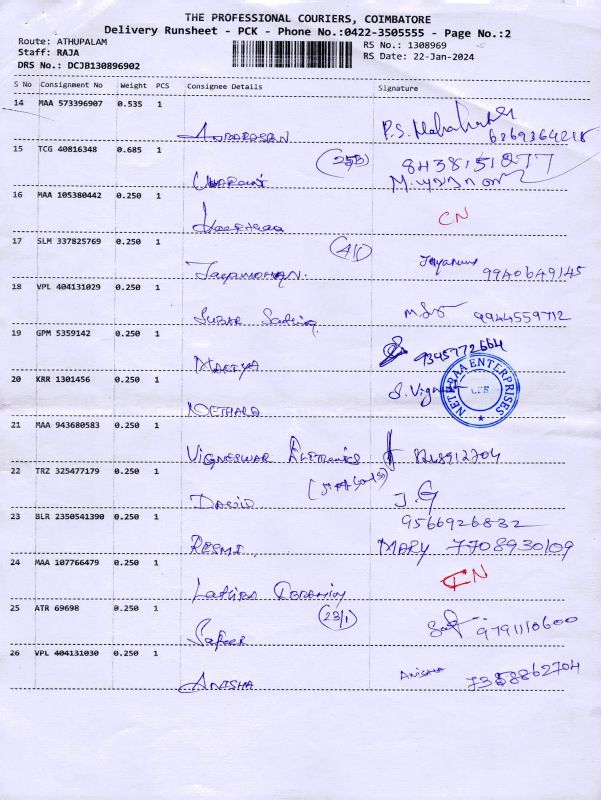 THE PROFESSIONAL COURIERS, COIMBATORE
Delivery Runsheet - PCK - Phone No.:0422-3505555 - Page No.:2
Route: ATHUPALAM
RS No.: 1308969
Staff: RAJA
RS Date: 22-Jan-2024
DRS No.: DCJB130896902
S No Consignment No Weight PCS Consignee Details Signature
14 MAA 573396907 0.535 1
P.S.
ANBARASAN
15 TCG 40816348 0.685 1
(25B)
16 MAA 105380442 0.250 1
CN
17 SLM 337825769 0.250 1
JAYAMOHAN. 9940649145
18 VPL 404131029 0.250 1
9944559712
19 GPM 5359142 0.250 1
9345772664
20 KRR 1301456 0.250 1
NETHRAA ENTERPRISES
CBE
NETHRA
21 MAA 943680583 0.250 1
VIGNESWAR
22 TRZ 325477179 0.250 1
DAVID J.G
23 BLR 2350541390 0.250 1
9566926832
RESMI, MARY 7708930109
24 MAA 107766479 0.250 1
IN
25 ATR 69698 0.250 1
(23/1)
Safeer 9791110600
26 VPL 404131030 0.250 1
ANISHA Anisha 7358862704